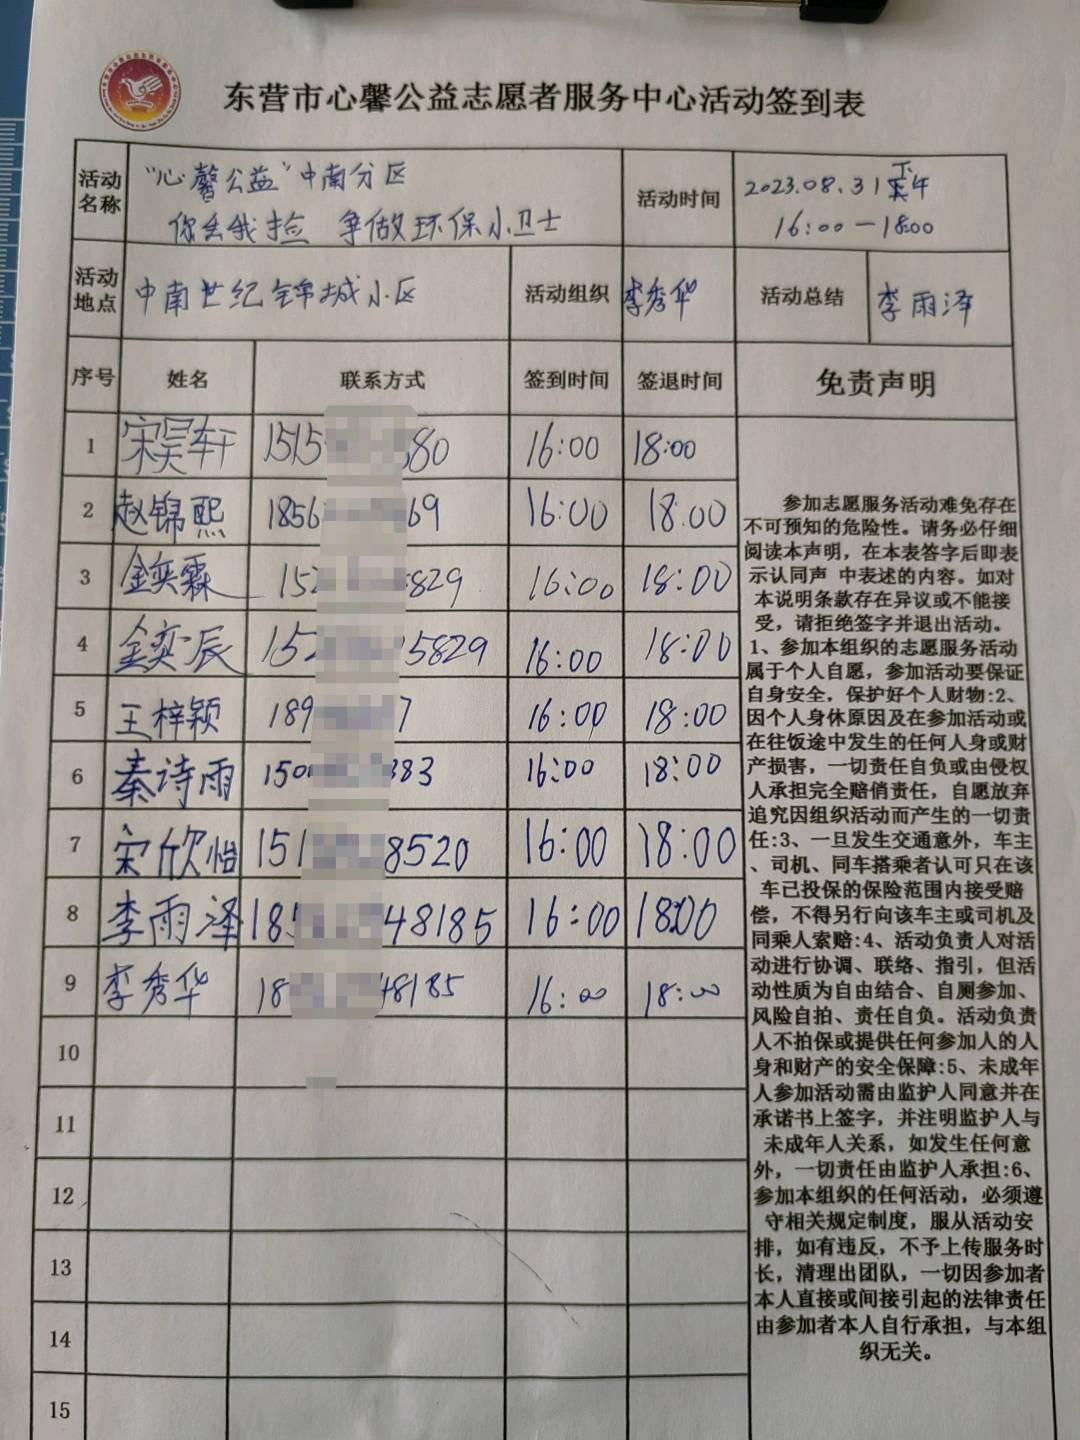 东营市心馨公益志愿者服务中心活动签到表
活动名称 "心馨公益"中南分区 活动时间 2023.08.31下午
你丢我捡 争做环保小卫士 16:00—18:00
活动地点 中南世纪锦城小区 活动组织 李秀华 活动总结 李雨泽
序号 姓名 联系方式 签到时间 签退时间 免责声明
1 宋昊轩 1515 80 16:00 18:00
2 赵锦熙 1856 69 16:00 18:00
3 金奕霖 152 829 16:00 18:00
4 金奕辰 152 5829 16:00 18:00
5 王梓颖 189 7 16:00 18:00
6 秦诗雨 150 383 16:00 18:00
7 宋欣怡 151 8520 16:00 18:00
8 李雨泽 185 48185 16:00 18:00
9 李秀华 18 48185 16:00 18:00
10
11
12
13
14
15
参加志愿服务活动难免存在
不可预知的危险性。请务必仔细
阅读本声明，在本表答字后即表
示认同声 中表述的内容。如对
本说明条款存在异议或不能接
受，请拒绝签字并退出活动。
1、参加本组织的志愿服务活动
属于个人自愿，参加活动要保证
自身安全，保护好个人财物:2、
因个人身休原因及在参加活动或
在往饭途中发生的任何人身或财
产损害，一切责任自负或由侵权
人承担完全赔俏责任，自愿放弃
追究因组织活动而产生的一切责
任:3、一旦发生交通意外，车主
、司机、同车搭乘者认可只在该
车已投保的保险范围内接受赔
偿，不得另行向该车主或司机及
同乘人索赔:4、活动负责人对活
动进行协调、联络、指引，但活
动性质为自由结合、自厕参加、
风险自拍、责任自负。活动负责
人不拍保或提供任何参加人的人
身和财产的安全保障:5、未成年
人参加活动需由监护人同意并在
承诺书上签字，并注明监护人与
未成年人关系，如发生任何意
外，一切责任由监护人承担:6、
参加本组织的任何活动，必须遵
守相关规定制度，服从活动安
排，如有违反，不予上传服务时
长，清理出团队，一切因参加者
本人直接或间接引起的法律责任
由参加者本人自行承担，与本组
织无关。